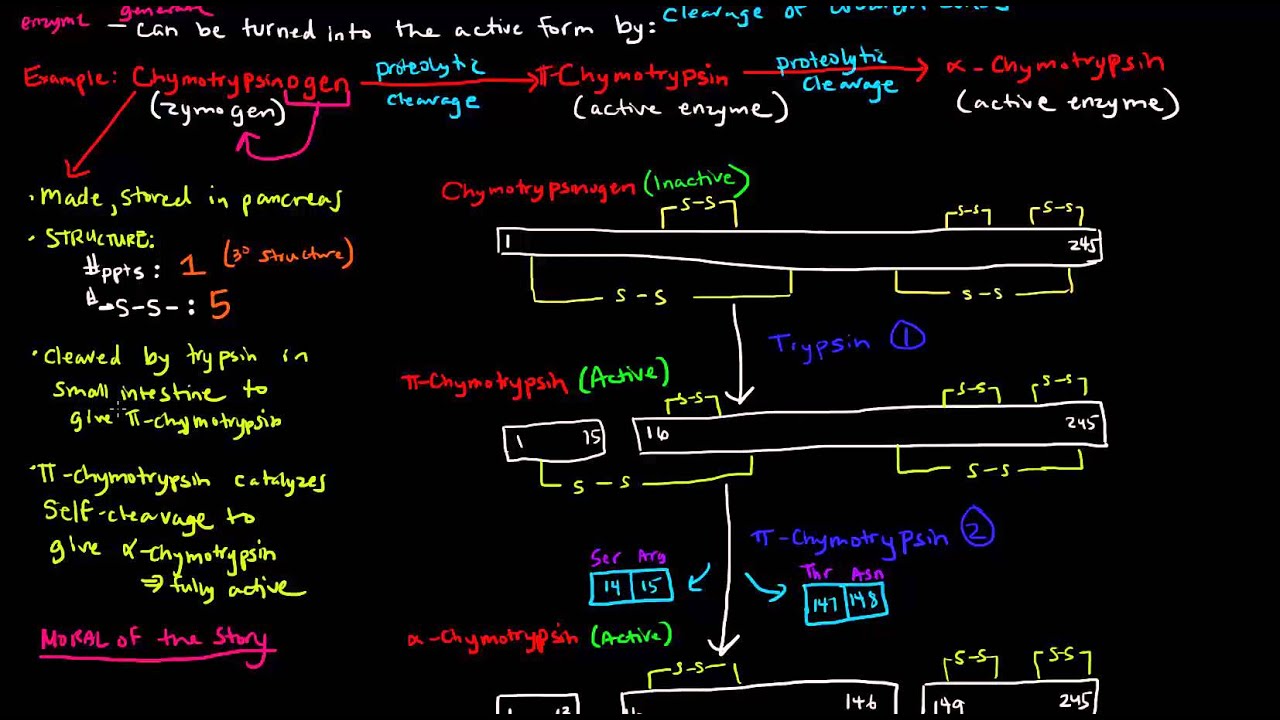 enzyme
- can be turned into the active form by: cleavage of
Example: Chymotrypsinogen proteolytic cleavage π-Chymotrypsin proteolytic cleavage α-Chymotrypsin
(zymogen) (active enzyme) (active enzyme)
• Made, stored in pancreas
• STRUCTURE:
#ppts: 1 (3° structure)
# -S-S-: 5
• Cleaved by trypsin in
small intestine to
give π-chymotrypsin
• π-chymotrypsin catalyzes
self-cleavage to
give α-chymotrypsin
⇒ fully active
MORAL of the Story
Chymotrypsinogen (Inactive)
S-S S-S S-S
1 245
S-S S-S
Trypsin 1
π-Chymotrypsin (Active)
S-S S-S S-S
1 15 16 245
S-S S-S
π-Chymotrypsin 2
Ser Arg
14 15
Thr Asn
147 148
α-Chymotrypsin (Active)
S-S S-S S-S
1 13 146 149 245